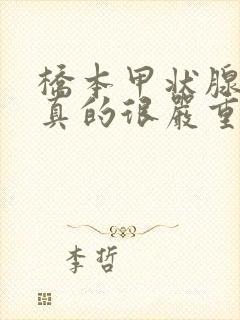 橋本甲状腺
真的很嚴重
李哲